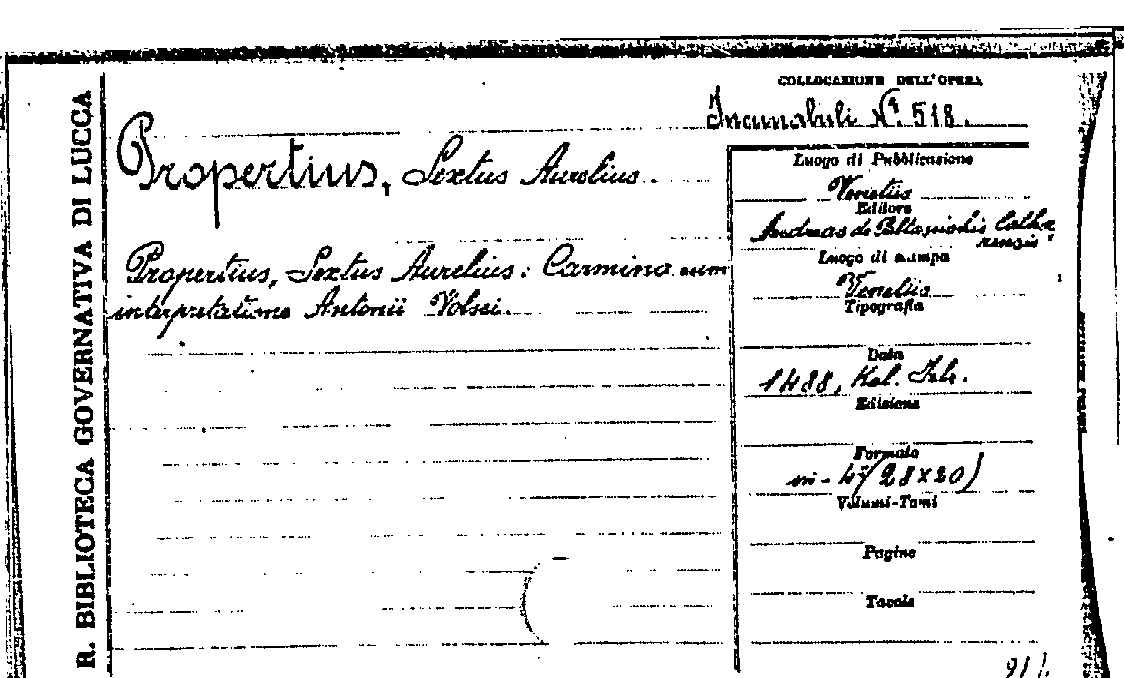 R. BIBLIOTECA GOVERNATIVA DI LUCCA
COLLOCAZIONE DELL'OPERA
Incunabuli N.º 518.
Propertius, Sextus Aurelius.
Propertius, Sextus Aurelius: Carmina cum
interpretatione Antonii Volsci.
Luogo di Pubblicazione
Venetiis
Editore
Andreas de
Luogo di stampa
Venetiis
Tipografia
Data
1488, Kal. Feb.
Edizione
Formato
in-4º (28x20)
Volumi-Tomi
Pagine
Tavole